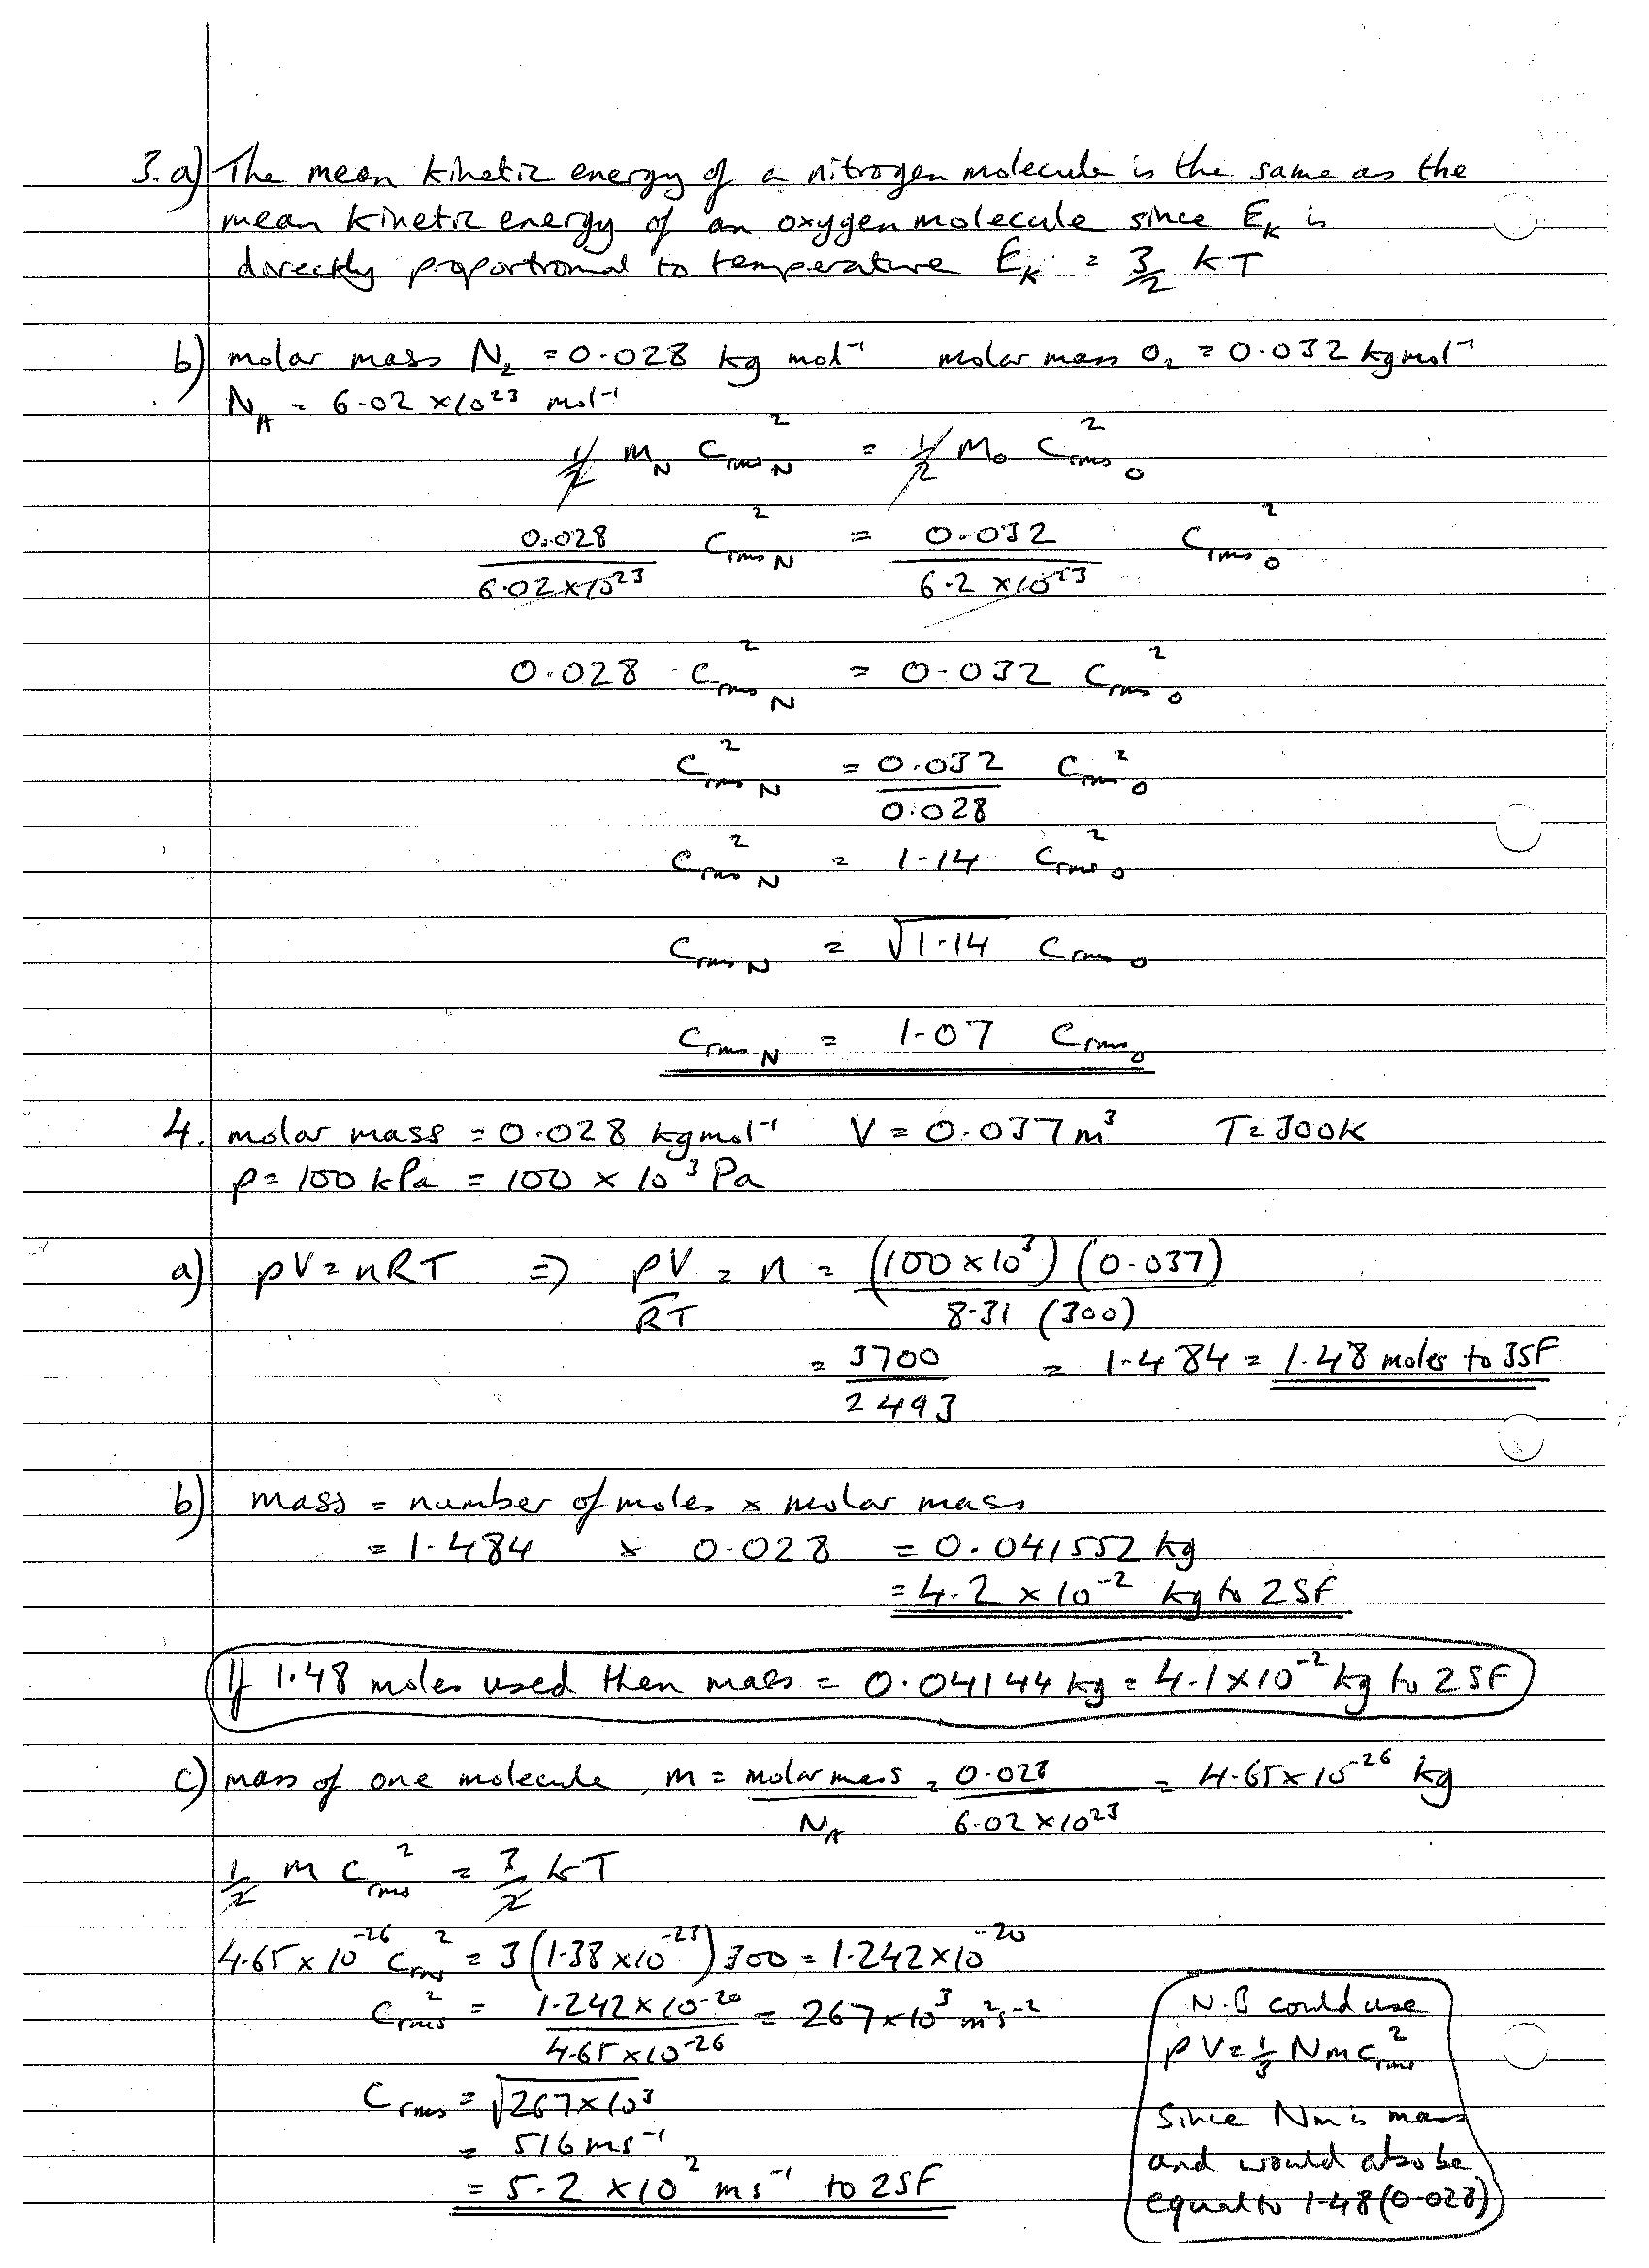 3.a) The mean kinetic energy of a nitrogen molecule is the same as the
mean kinetic energy of an oxygen molecule since E_K is
directly proportional to temperature E_K = 3/2 kT
b) molar mass N₂ = 0.028 kg mol⁻¹ molar mass O₂ = 0.032 kg mol⁻¹
N_A = 6.02 × 10²³ mol⁻¹
1/2 m_N c_rms N² = 1/2 m_O c_rms O²
0.028/6.02×10²³ c_rms N² = 0.032/6.2×10²³ c_rms O²
0.028 c_rms N² = 0.032 c_rms O²
c_rms N² = 0.032/0.028 c_rms O²
c_rms N² = 1.14 c_rms O²
c_rms N = √1.14 c_rms O
c_rms N = 1.07 c_rms O
4. molar mass = 0.028 kg mol⁻¹ V = 0.037 m³ T = 300K
p = 100 kPa = 100 × 10³ Pa
a) pV = nRT ⇒ pV/RT = n = (100×10³)(0.037)/8.31 (300)
= 3700/2493 = 1.484 = 1.48 moles to 3SF
b) mass = number of moles × molar mass
= 1.484 × 0.028 = 0.041552 kg
= 4.2 × 10⁻² kg to 2SF
If 1.48 moles used then mass = 0.04144 kg = 4.1×10⁻² kg to 2SF
c) mass of one molecule, m = molar mass/N_A = 0.028/6.02×10²³ = 4.65×10⁻²⁶ kg
1/2 m c_rms² = 3/2 kT
4.65×10⁻²⁶ c_rms² = 3(1.38×10⁻²³)300 = 1.242×10⁻²⁰
c_rms² = 1.242×10⁻²⁰/4.65×10⁻²⁶ = 267×10³ m²s⁻²
c_rms = √267×10³
= 516 ms⁻¹
= 5.2 × 10² ms⁻¹ to 2SF
N.B could use
pV = 1/3 Nmc_rms²
Since Nm is mass
and would also be
equal to 1.48(0.028)